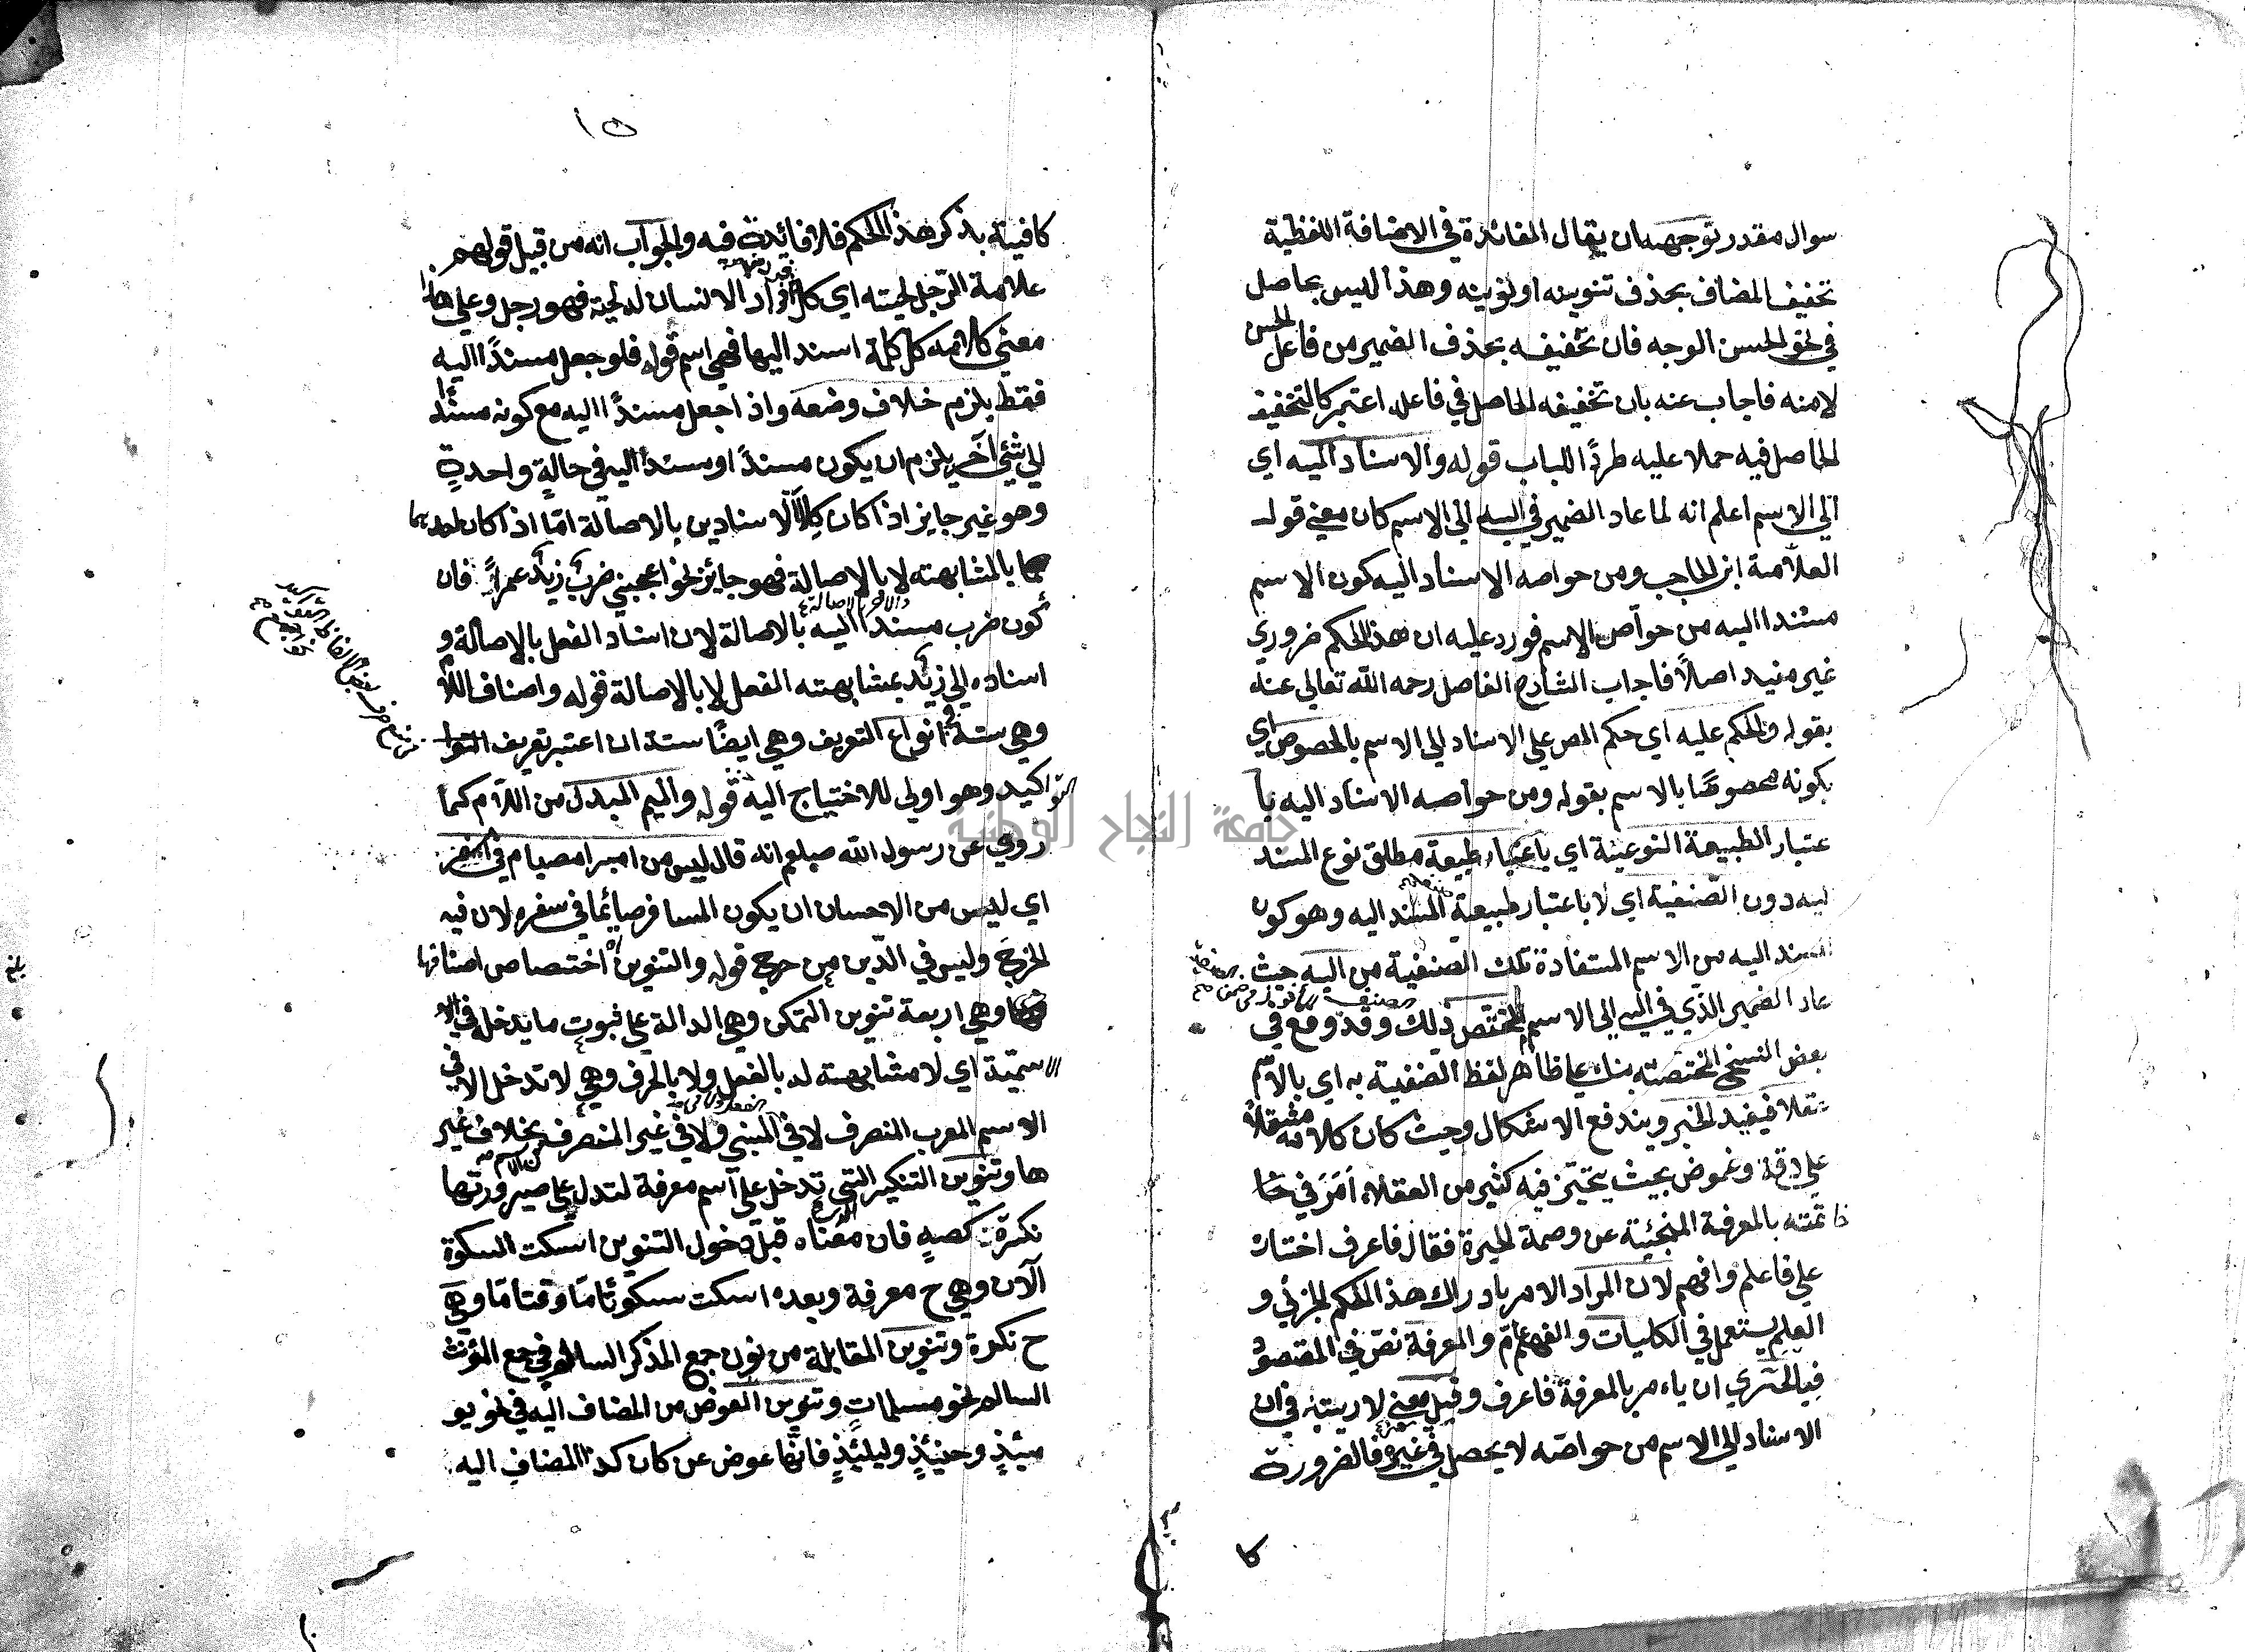 سوال مقدر توجيهه ان يقال الفائدة في الاضافة اللفظية
تخفيف المضاف بحذف تنوينه او نوينه وهذا ليس بحاصل
في نحو الحسن الوجه فان تخفيفه بحذف الضمير من فاعل الحسن
لا منه فاجاب عنه بان تخفيفه الحاصل في فاعله اعتبر كالتخفيف
الحاصل فيه حملا عليه طردًا للباب قوله والاسناد اليه اي
الي الاسم اعلم انه لما عاد الضمير في اليه الي الاسم كان معني قول
العلامة ابن الحاجب ومن خواصه الاسناد اليه كون الاسم
مسندا اليه من خواص الاسم فورد عليه ان هذا الحكم ضروري
غير مفيد اصلاً فاجاب الشارح الفاضل رحمه الله تعالي عنه
بقوله والحكم عليه اي حكم المص علي الاسناد الي الاسم بالخصوص اي
بكونه مخصوصًا بالاسم بقوله ومن خواصه الاسناد اليه با
عتبار الطبيعة النوعية اي باعتبار طبيعة مطلق نوع المسند
ليه دون الصنفية اي لا باعتبار طبيعة المسند اليه وهو كون
المسند اليه من الاسم المستفادة تلك الصنفية من اليه حيث
عاد الضمير الذي في اليه الي الاسم المختص ذلك وقد وقع في
بعض النسخ المختصة بنك علي ظاهر لفظ الصنفية به اي بالاسم
فيفيد الخبر ويندفع الاشكال وحيث كان كلامه مشتملاً
علي دقة وغموض بحيث يتحير فيه كثير من العقلاء امَرَ في خا
خاتمته بالمعرفة المنجئية عن وصمة الحيرة فقال فاعرف اختار
علي فاعلم وافهم لان المراد الامر بادراك هذا الحكم الجزئي و
العلم يستعمل في الكليات والفهم عامّ والمعرفة نصّ في المقصود
فبالحري ان يامر بالمعرفة فاعرف وقيل معني لا ريبة في ان
الاسناد الي الاسم من خواصه لا يحصل في غيره فالضرورة
كا
١٥
كافية بذكر هذا الحكم فلا فائدة فيه والجواب انه من قبيل قولهم
علامة الرجل لحيته اي كل افراد الانسان له لحية فهو رجل وعلي هذا
معني كلامه كل كلمة اسند اليها فهي اسم قوله فلو جعل مسندًا اليه
فقط يلزم خلاف وضعه واذا جعل مسندًا اليه مع كونه مسندًا
الي شئ آخر يلزم ان يكون مسندًا ومسندًا اليه في حالةٍ واحدةٍ
وهو غير جايز اذا كان كلا الاسنادين بالاصالة امّا اذا كان احدهما
بالمشابهته لا بالاصالة فهو جايز نحو اعجبني ضربُ زيدٍ عمراً فان
كون ضرب مسندا اليه بالاصالة لان اسناد الفعل بالاصالة و
اسناده الي زيد بمشابهته الفعل لا بالاصالة قوله واصناف اللام
وهي ستة انواع التعريف وهي ايضًا ستة ان اعتبر تعريف التوا
التواكيد وهو اولي للاحتياج اليه قوله والميم المبدل من اللام كما
روي عن رسول الله صلعم انه قال ليس من امبر امصيام في امسفر
اي ليس من الاحسان ان يكون المسافر صائمًا في سفره لان فيه
الحرج وليس في الدّين من حرج قوله والتنوين اختصاص اصنافها
وهي اربعة تنوين التمكن وهي الدالة علي ثبوت ما يدخل في الا
الاسميّة اي لا مشابهته له بالفعل ولا بالحرف وهي لا تدخل الا في
الاسم المعرب المنصرف لا في المبني ولا في غير المنصرف بخلاف غير
ها وتنوين التنكير التي تدخل علي اسم معرفة لتدل علي صيرورتها
نكرة كصهٍ فان معناه قبل دخول التنوين اسكت السكوة
الآن وهي ح معرفة وبعده اسكت سكوتًا مّا وقتا مّا وهي
ح نكرة وتنوين المقابلة من نون جمع المذكر السالم في جمع المؤنث
السالم نحو مسلماتٍ وتنوين العوض من المضاف اليه في نحو يو
مئذٍ وحينئذٍ وليلتئذٍ فانها عوض عن كان كذا المضاف اليه
جامعة النجاح الوطنية